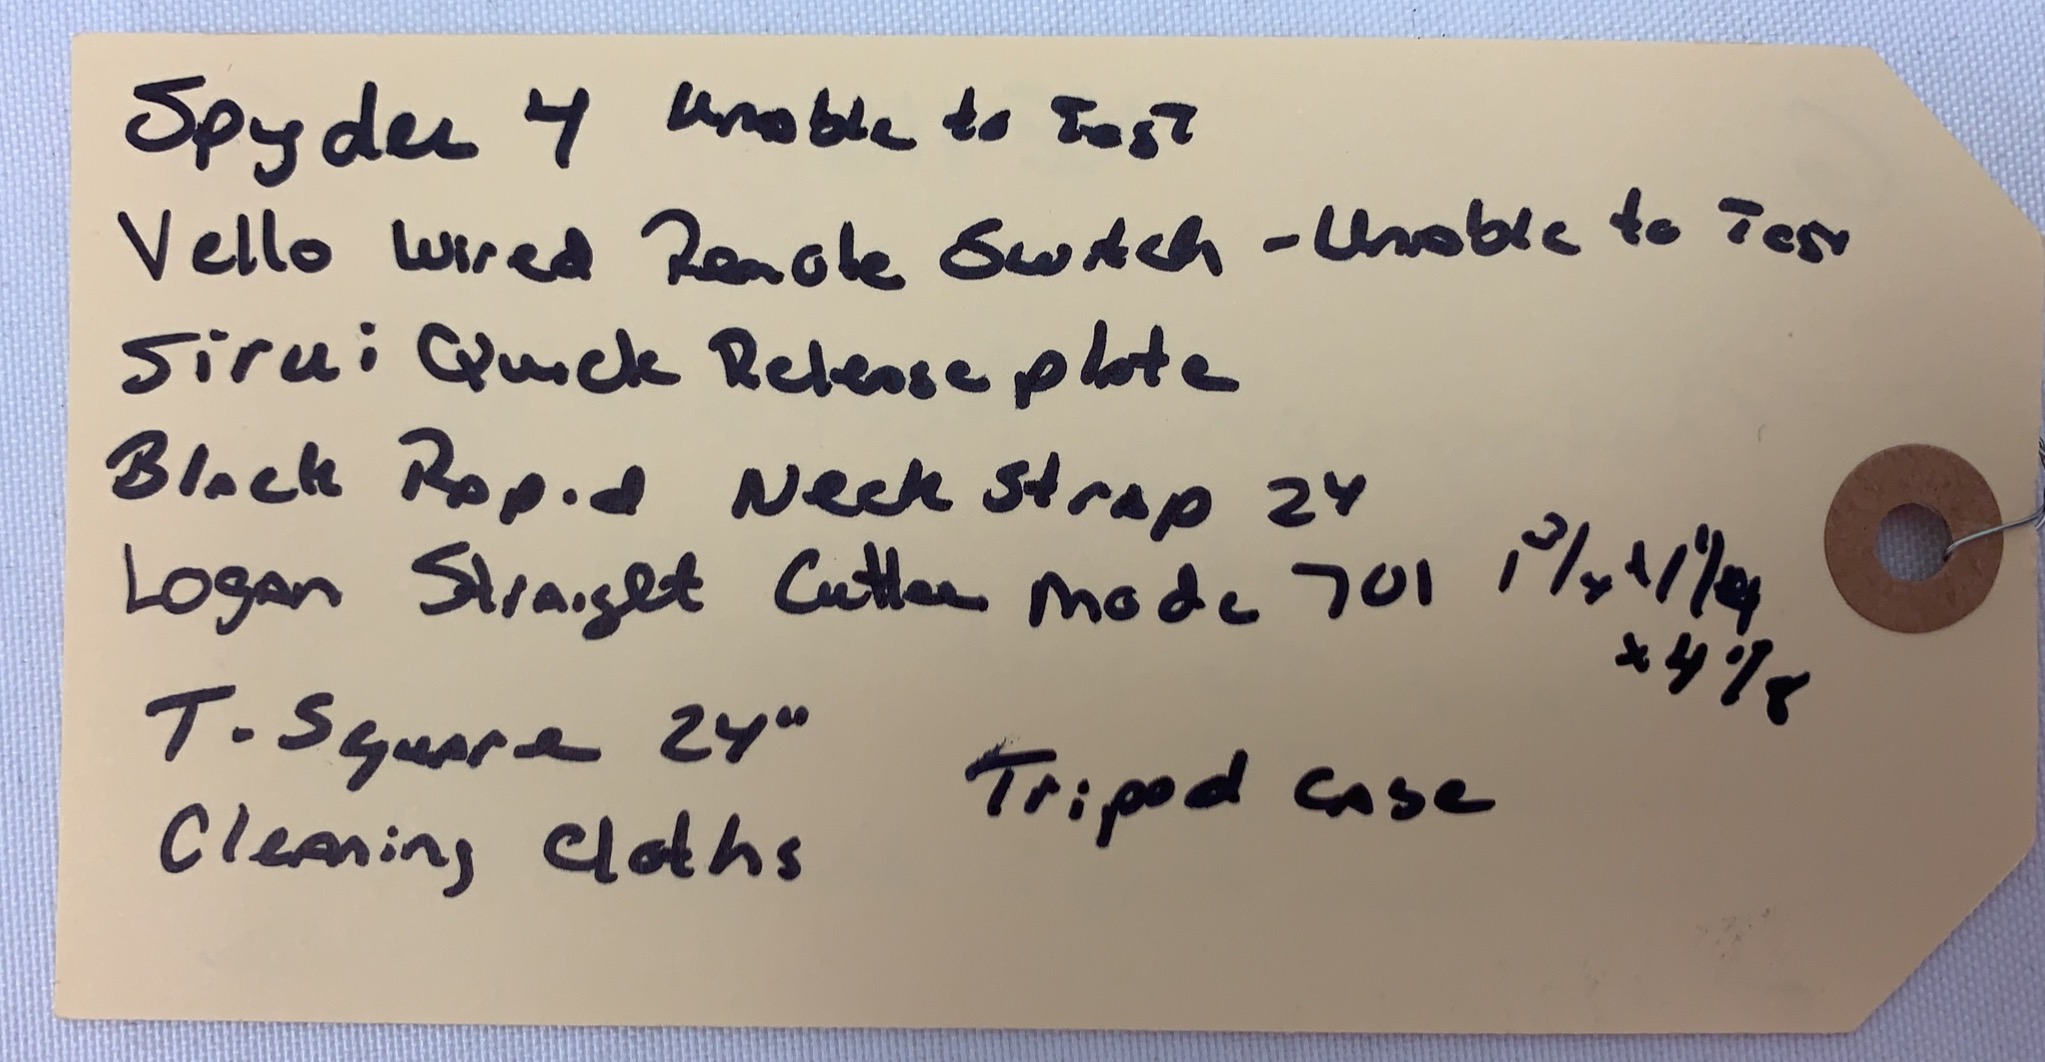 Spyder 4 Unable to Test
Vello Wired Remote Switch - Unable to Test
Sirui Quick Release plate
Black Rapid Neck Strap 24
Logan Straight Cutter Mode 701 1 3/4 x 1 1/4
x 4 1/8
T-Square 24"
Tripod Case
Cleaning Cloths